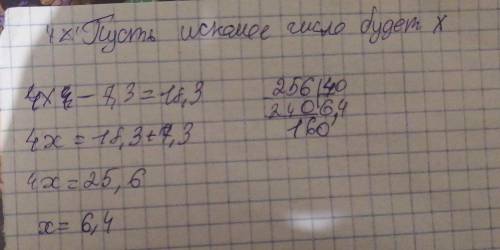 4x! Пусть искомое число будет x
4x - 7,3 = 18,3
4x = 18,3 + 7,3
4x = 25,6
x = 6,4
256 | 40
240 | 6,4
160